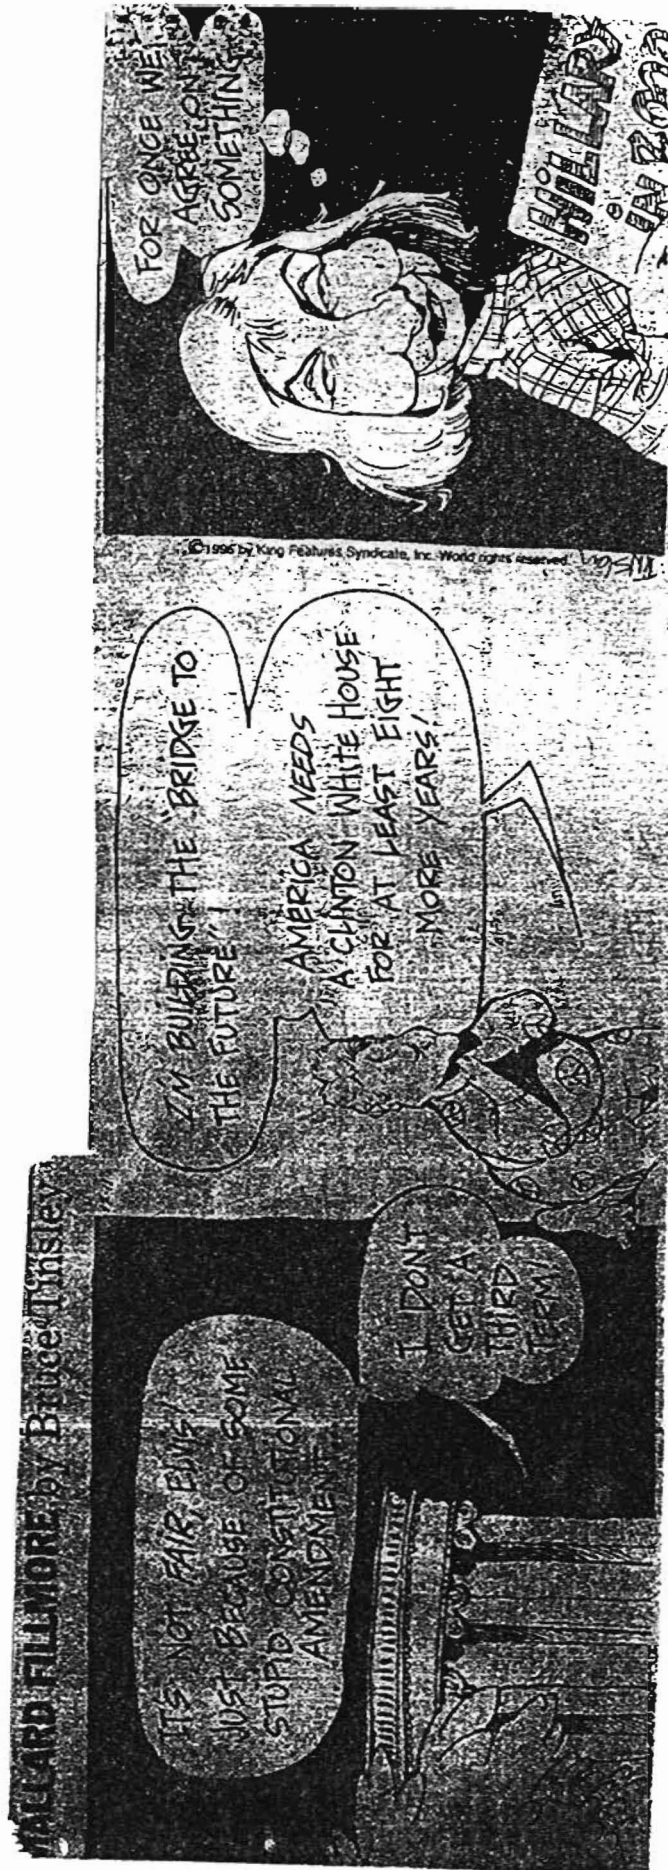 MALLARD FILLMORE by Bruce Tinsley
IT'S NOT FAIR, ELVIS!
JUST BECAUSE OF SOME
STUPID CONSTITUTIONAL
AMENDMENT
I DON'T
GET A
THIRD
TERM!
I'M BUILDING THE "BRIDGE TO
THE FUTURE"!
AMERICA NEEDS
A CLINTON WHITE HOUSE
FOR AT LEAST EIGHT
MORE YEARS!
©1996 by King Features Syndicate, Inc. World rights reserved.
FOR ONCE WE
AGREE ON
SOMETHING
HILLARY
IN